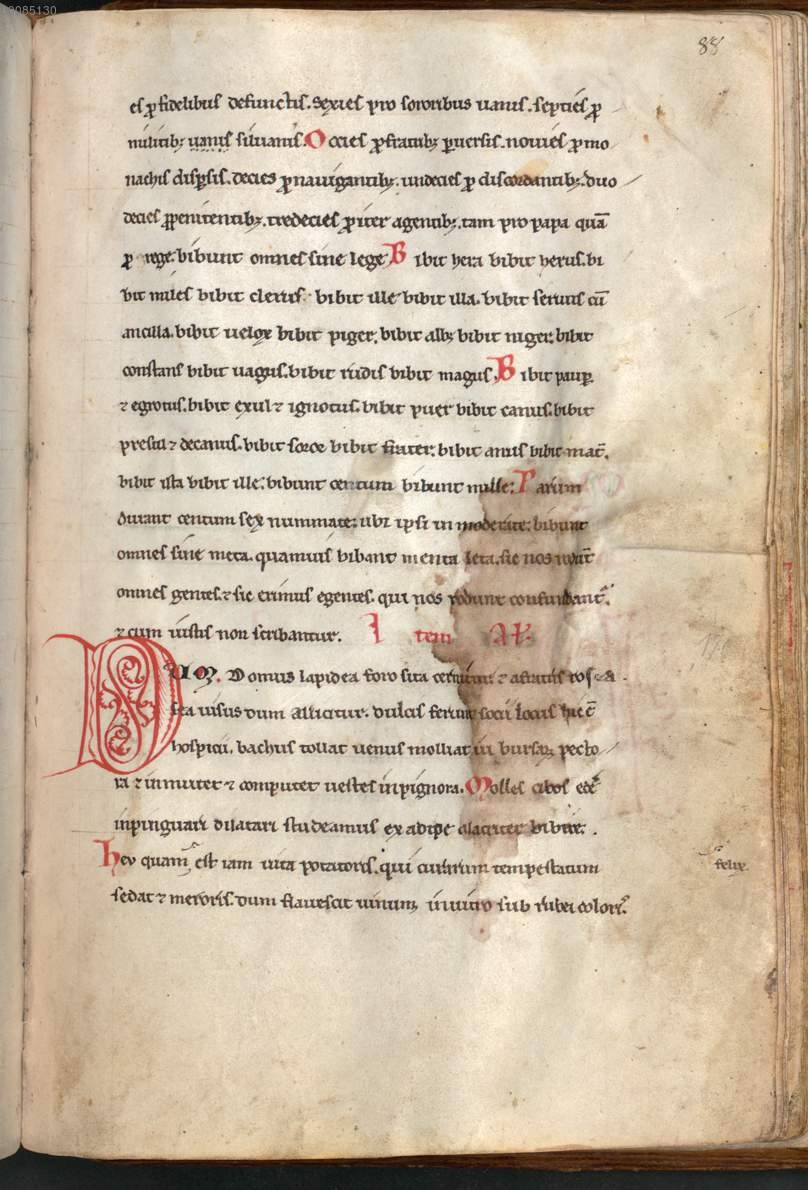 2085130
88
es ꝑ fidelibus defunctis. Sexies pro sororibus uanis. septies ꝓ
militibꝫ uanis siluanis. Occies ꝓ fratribꝫ ꝑuersis. nouies ꝓ mo
nachis disꝑsis. decies ꝓ nauigantibꝫ. undecies ꝓ discordantibꝫ. duo
decies ꝓ penitentibꝫ. tredecies ꝓ iter agentibꝫ. tam pro papa quā
ꝓ rege. bibunt omnes sine lege Bibit hera bibit herus. bi
bit miles bibit clerus. bibit ille bibit illa. bibit seruus cū
ancilla. bibit uelox bibit piger. bibit albꝫ bibit niger. bibit
constans bibit uagus. bibit rudis bibit magus. Bibit pauꝑ
⁊ egrotus. bibit exul ⁊ ignotus. bibit puer bibit canus. bibit
presul ⁊ decanus. bibit soror bibit frater. bibit anus bibit mat̄.
bibit ista bibit ille. bibunt centum bibunt mille. Parum
durant centum sex nummate. ubi ipsi inmoderate. bibunt
omnes sine meta. quamuis bibant menta leta. sic nos rodūt
omnes gentes. ⁊ sic erimus egentes. qui nos rodunt confundant᷑.
⁊ cum iustis non scribantur. Item
DUM Domus lapidea foro sita cernitur ⁊ a fratris rosea
sea uisus dum allicitur. dulcis ferunt socii locus hic ē
hospicii. bachus tollat uenus molliat ui bursaꝝ pecto
ra ⁊ inmutet ⁊ computet uestes inpignora. Molles cibos ede᷑
inpinguari dilatari studeamus ex adipe alacriter bibere.
Hev quam est iam uita potatoris. qui curarum tempestatum
felix.
sedat ⁊ meroris. dum flauescit uinum inuitro sub rubei coloris.